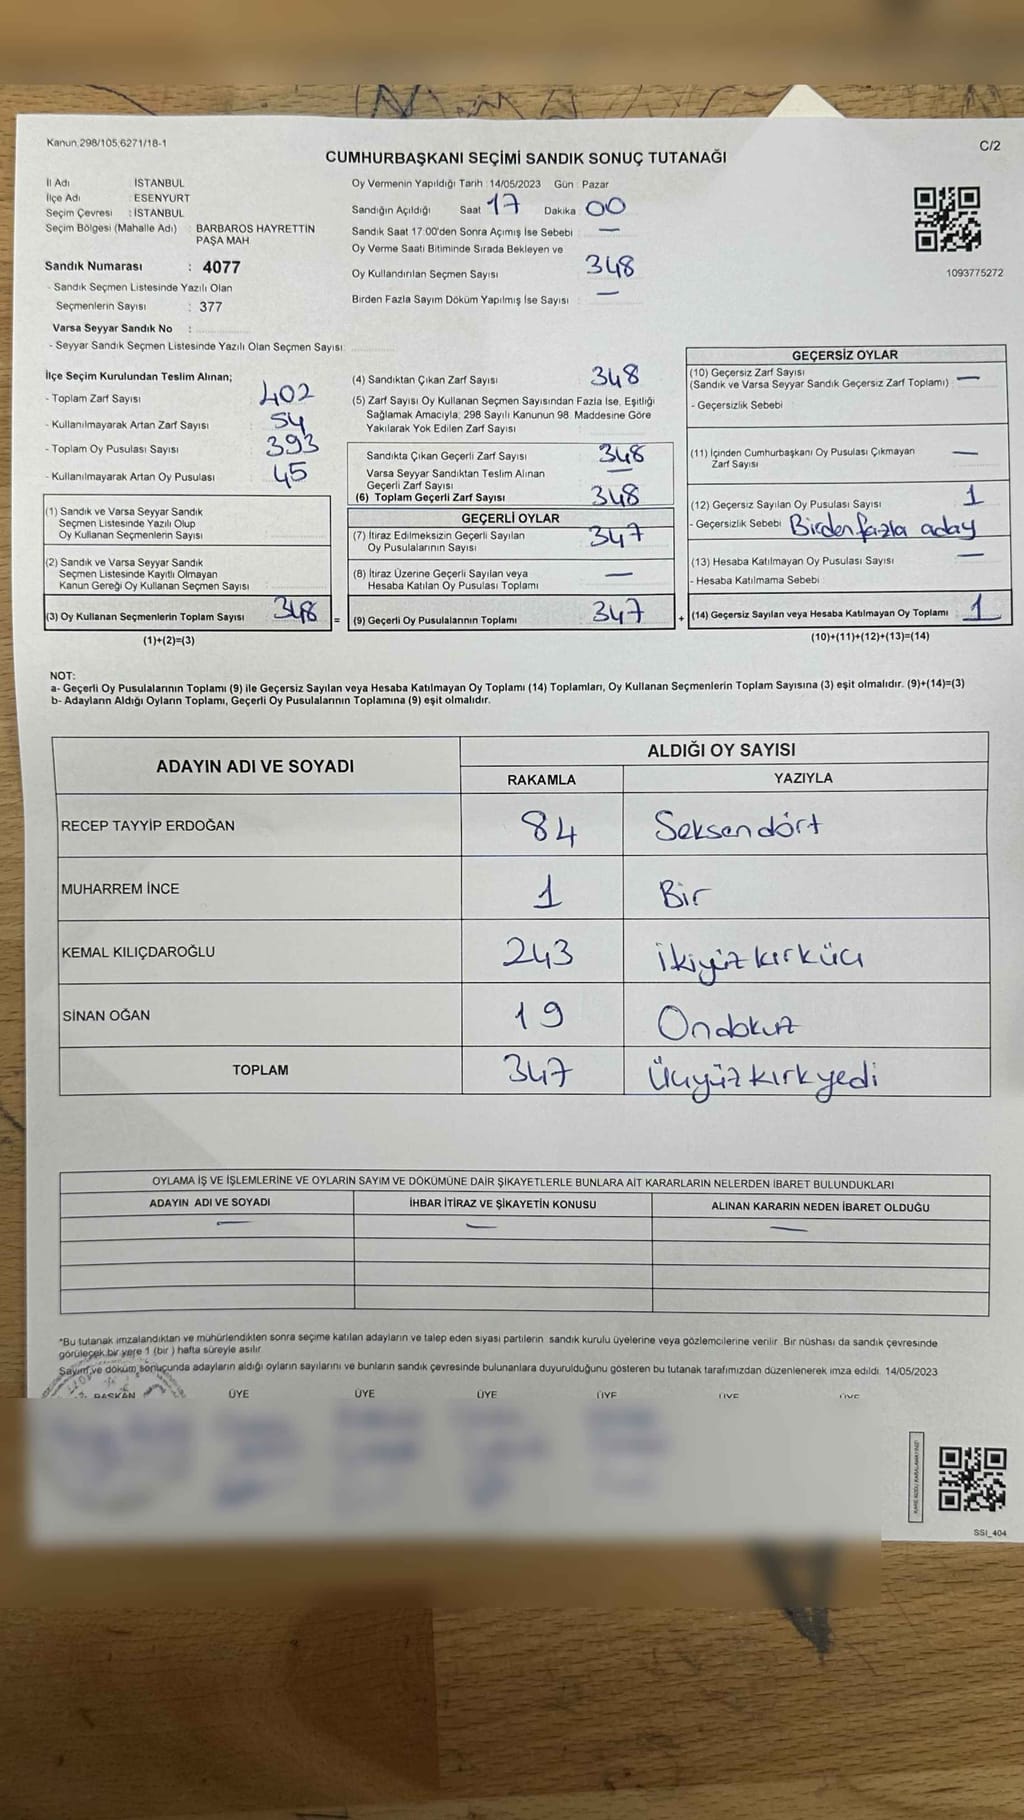 Kanun.298/105,6271/18-1
C/2
CUMHURBAŞKANI SEÇİMİ SANDIK SONUÇ TUTANAĞI
İl Adı İSTANBUL
İlçe Adı : ESENYURT
Seçim Çevresi : İSTANBUL
Seçim Bölgesi (Mahalle Adı) : BARBAROS HAYRETTİN
PAŞA MAH
Sandık Numarası : 4077
- Sandık Seçmen Listesinde Yazılı Olan
Seçmenlerin Sayısı : 377
Varsa Seyyar Sandık No :
- Seyyar Sandık Seçmen Listesinde Yazılı Olan Seçmen Sayısı:
Oy Vermenin Yapıldığı Tarih : 14/05/2023 Gün : Pazar
Sandığın Açıldığı Saat 17 Dakika 00
Sandık Saat 17:00'den Sonra Açımış İse Sebebi : —
Oy Verme Saati Bitiminde Sırada Bekleyen ve
Oy Kullandırılan Seçmen Sayısı 348
Birden Fazla Sayım Döküm Yapılmış İse Sayısı : —
1093775272
İlçe Seçim Kurulundan Teslim Alınan;
- Toplam Zarf Sayısı 402
- Kullanılmayarak Artan Zarf Sayısı 54
- Toplam Oy Pusulası Sayısı 393
- Kullanılmayarak Artan Oy Pusulası 45
(1) Sandık ve Varsa Seyyar Sandık
Seçmen Listesinde Yazılı Olup
Oy Kullanan Seçmenlerin Sayısı
(2) Sandık ve Varsa Seyyar Sandık
Seçmen Listesinde Kayıtlı Olmayan
Kanun Gereği Oy Kullanan Seçmen Sayısı
(3) Oy Kullanan Seçmenlerin Toplam Sayısı 348
(1)+(2)=(3)
(4) Sandıktan Çıkan Zarf Sayısı 348
(5) Zarf Sayısı Oy Kullanan Seçmen Sayısından Fazla İse, Eşitliği
Sağlamak Amacıyla, 298 Sayılı Kanunun 98. Maddesine Göre
Yakılarak Yok Edilen Zarf Sayısı
Sandıkta Çıkan Geçerli Zarf Sayısı 348
Varsa Seyyar Sandıktan Teslim Alınan
Geçerli Zarf Sayısı —
(6) Toplam Geçerli Zarf Sayısı 348
GEÇERLİ OYLAR
(7) İtiraz Edilmeksizin Geçerli Sayılan
Oy Pusulalarının Sayısı 347
(8) İtiraz Üzerine Geçerli Sayılan veya
Hesaba Katılan Oy Pusulası Toplamı —
= (9) Geçerli Oy Pusulalarının Toplamı 347
GEÇERSİZ OYLAR
(10) Geçersiz Zarf Sayısı
(Sandık ve Varsa Seyyar Sandık Geçersiz Zarf Toplamı) —
- Geçersizlik Sebebi
(11) İçinden Cumhurbaşkanı Oy Pusulası Çıkmayan
Zarf Sayısı —
(12) Geçersiz Sayılan Oy Pusulası Sayısı 1
- Geçersizlik Sebebi Birden fazla aday
(13) Hesaba Katılmayan Oy Pusulası Sayısı —
- Hesaba Katılmama Sebebi
+ (14) Geçersiz Sayılan veya Hesaba Katılmayan Oy Toplamı 1
(10)+(11)+(12)+(13)=(14)
NOT:
a- Geçerli Oy Pusulalarının Toplamı (9) ile Geçersiz Sayılan veya Hesaba Katılmayan Oy Toplamı (14) Toplamları, Oy Kullanan Seçmenlerin Toplam Sayısına (3) eşit olmalıdır. (9)+(14)=(3)
b- Adayların Aldığı Oyların Toplamı, Geçerli Oy Pusulalarının Toplamına (9) eşit olmalıdır.
ADAYIN ADI VE SOYADI ALDIĞI OY SAYISI
RAKAMLA YAZIYLA
RECEP TAYYİP ERDOĞAN 84 Seksendört
MUHARREM İNCE 1 Bir
KEMAL KILIÇDAROĞLU 243 İkiyüz kırküç
SİNAN OĞAN 19 Ondokuz
TOPLAM 347 Üçyüz kırk yedi
OYLAMA İŞ VE İŞLEMLERİNE VE OYLARIN SAYIM VE DÖKÜMÜNE DAİR ŞİKAYETLERLE BUNLARA AİT KARARLARIN NELERDEN İBARET BULUNDUKLARI
ADAYIN ADI VE SOYADI İHBAR İTİRAZ VE ŞİKAYETİN KONUSU ALINAN KARARIN NEDEN İBARET OLDUĞU
— — —
*Bu tutanak imzalandıktan ve mühürlendikten sonra seçime katılan adayların ve talep eden siyasi partilerin sandık kurulu üyelerine veya gözlemcilerine verilir. Bir nüshası da sandık çevresinde
görülecek bir yere 1 (bir ) hafta süreyle asılır.
Sayım ve döküm sonucunda adayların aldığı oyların sayılarını ve bunların sandık çevresinde bulunanlara duyurulduğunu gösteren bu tutanak tarafımızdan düzenlenerek imza edildi. 14/05/2023
BAŞKAN ÜYE ÜYE ÜYE ÜYE ÜYE ÜYE
SSI_404